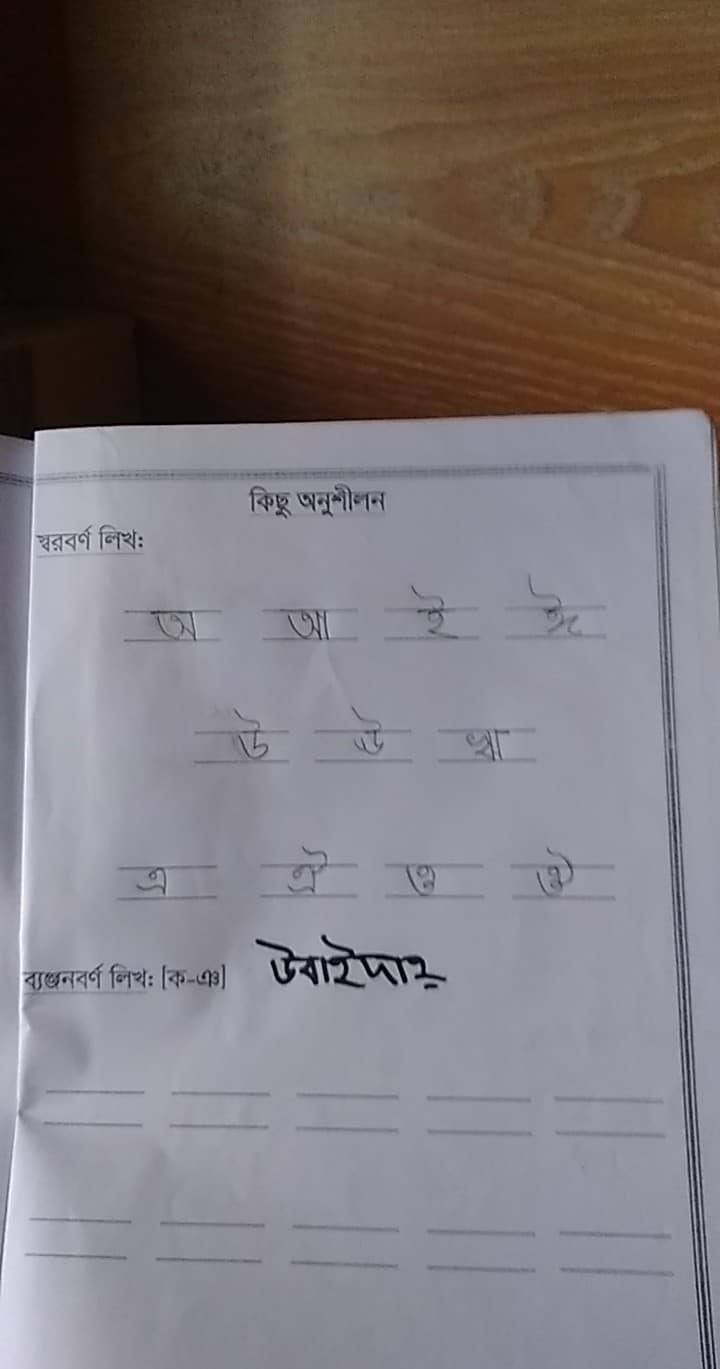 কিছু অনুশীলন
স্বরবর্ণ লিখ:
অ আ ই ঈ
উ ঊ ঋ
এ ঐ ও ঔ
ব্যঞ্জনবর্ণ লিখ: [ক-ঞ] উবাইদাহ্